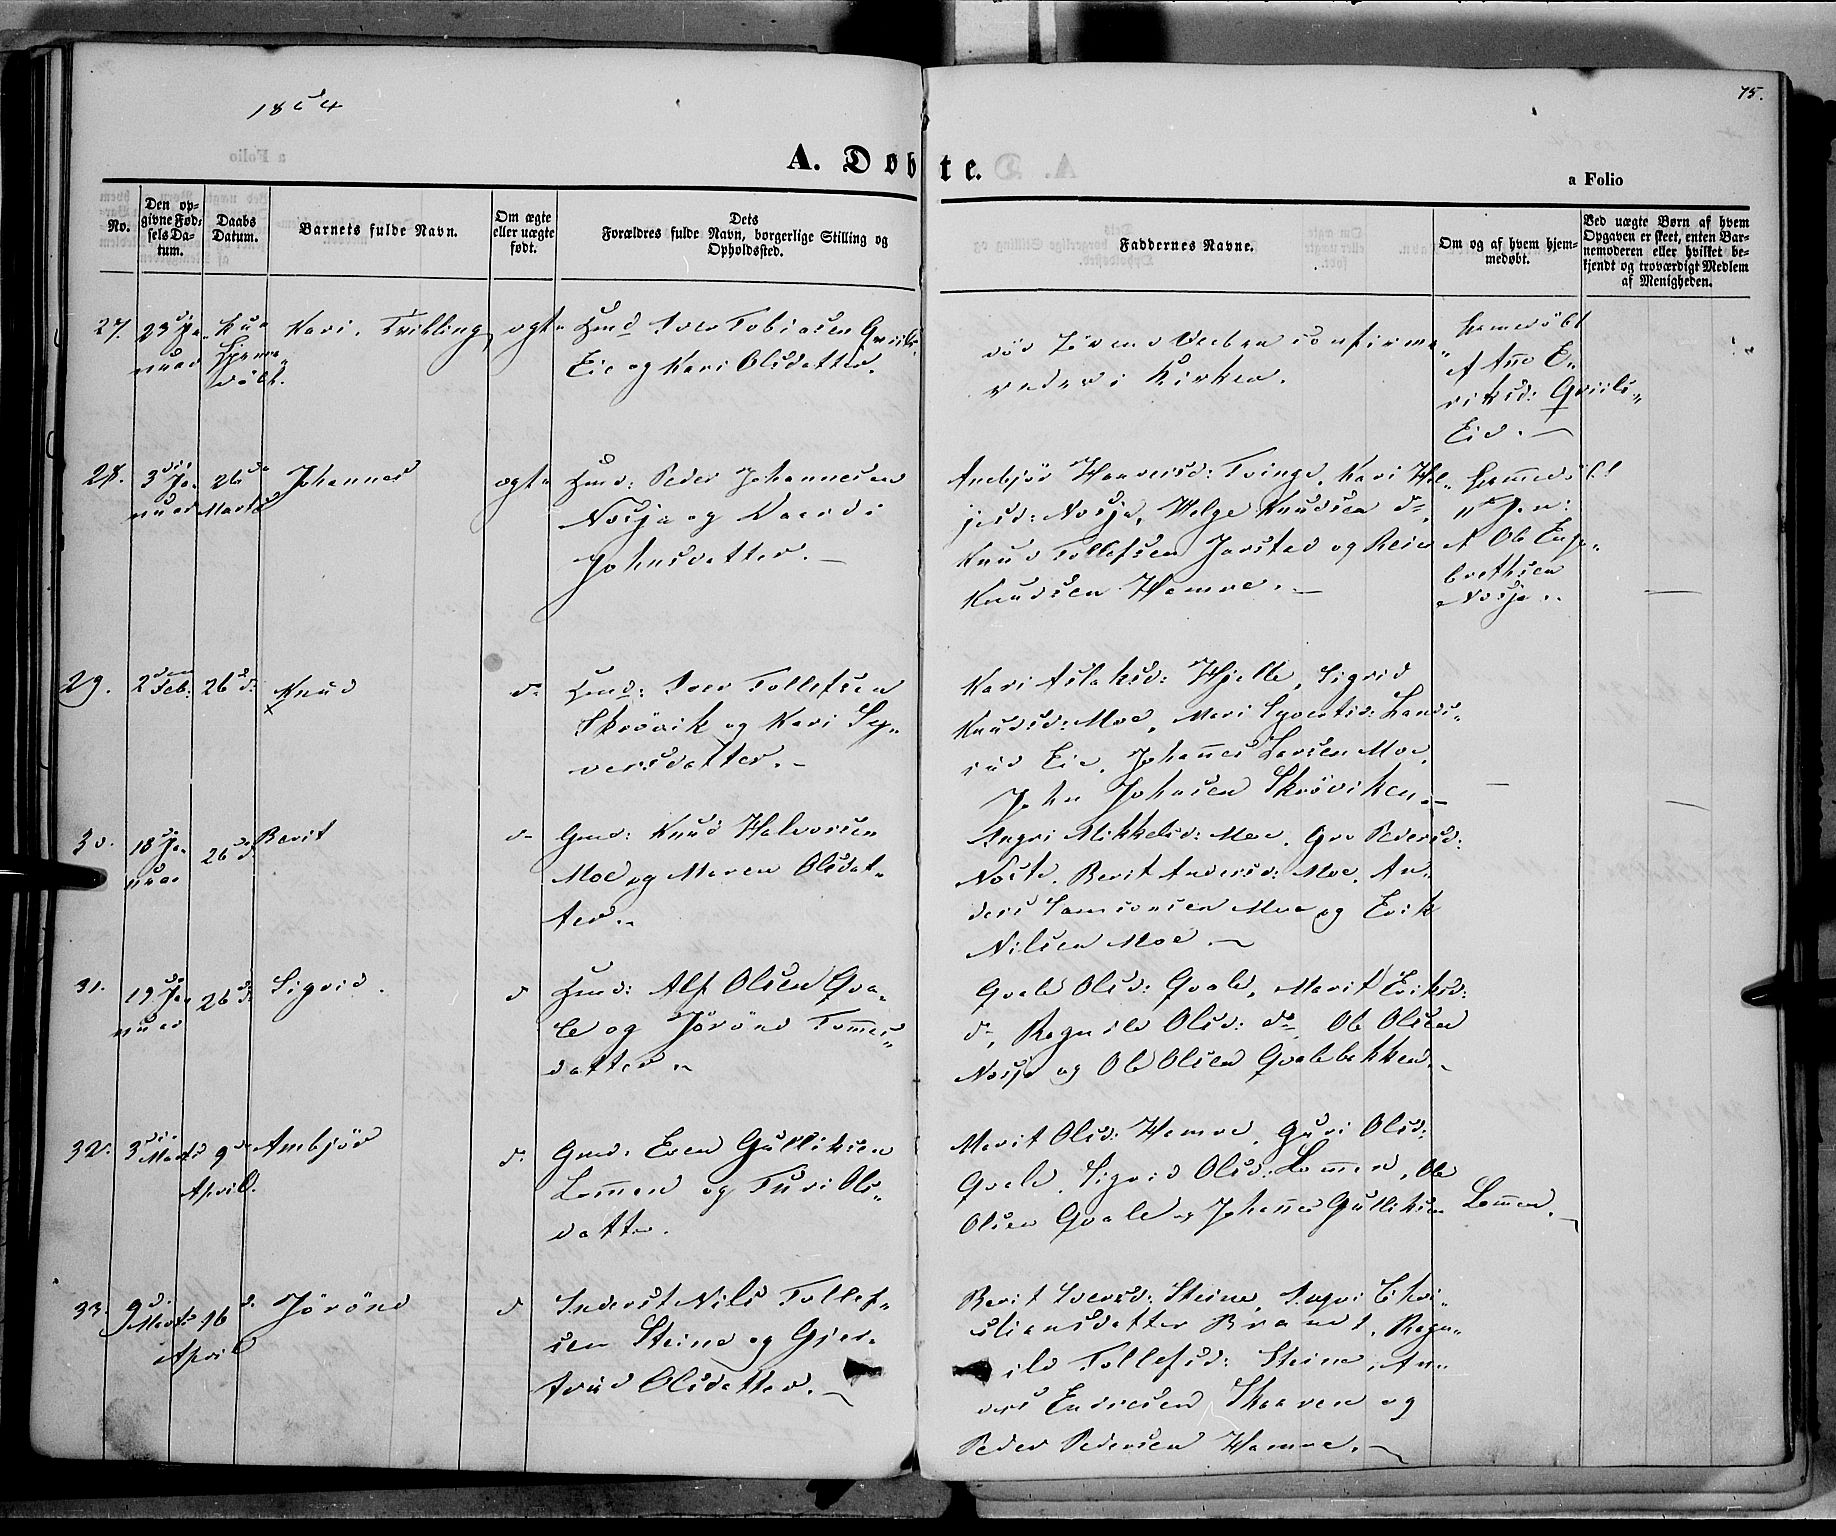 1854
75.
A. Døbte.
a Folio
No.
Den op-
givne Fød-
sels Da-
tum.
Daabs
Datum.
Barnets fulde Navn.
Om ægte
eller uægte
født.
Dets
Forældres fulde Navn, borgerlige Stilling og
Opholdssted.
Faddernes Navne.
Om og af hvem hjem-
medøbt.
Ved uægte Børn af hvem
Opgaven er skeet, enten Bar-
nemoderen eller hvilket be-
kjendt og troværdigt Medlem
af Menigheden.
27. 23 Ja-
nuar
Kun
hjemme
døbt.
Kari. Tvilling
ægte
Hmd Iver Tobiasen Qviils
Eie og Kari Olsdatter.
død
i Kirken.
hjemedöbt
af Ane E-
riksd: Qviils-
Eie.
28. 3 Ja-
nuar
26de
Marts
Johannes
ægte
Hmd: Peder Johannesen
Nosja og
Johnsdatter.
Anebjör Haaversd: Tvinge, Kari Hel-
jesd: Nosja, Helge Knudsen do,
Knud Tollefsen Jarstad og
Knudsen Hamre.
hjemedöbt
Jan:
af Ole Enge-
brethsen
Nosja.
29. 2den Feb: 26 d:
Knud
do
Hmd: Iver Tollefsen
Skrövik og Kari Sy-
versdatter.
Kari Aslaksd: Hjelle, Sigrid
Knudsd: Moe, Mari Syvertsd: Lands-
rud Eie, Johannes Larsen Moe,
John Johnsen Skröviken.
30. 18 Ja-
nuar
26 d:
Berit
do
Gmd: Knud Halvorsen
Moe og Maren Olsdat-
ter.
Ingri Mikkelsd: Moe, Gro Pedersd:
Noste, Berit Andersd: Moe, An-
ders Samsonsen Moe og Erik
Nilsen Moe.
31. 19 Ja-
nuar
26 d:
Sigrid.
do
Hmd: Alf Olsen Qva-
le og Jörönd Tomes-
datter.
Olsd: Qvale, Marit Eriksd:
do, Ragnild Olsd: do Ole Olsen
Nosja og Ole Olsen Qvalebakken.
32. 3 Marts 9de
April.
Anbjör
do
Gmd: Even Gulliksen
Lomen og Turi Ols-
datter.
Marit Olsd: Hamre, Guri Olsd:
Qvale, Sigrid Olsd: Lomen, Ole
Olsen Qvale og Johannes Gulliksen Lomen.
33. 9 Marts 16 d.
April
Jörönd
do
Inderst Nils Tollef-
sen Steine og Gjer-
trud Olsdatter.
Berit Iversd: Steine, Ingri Chri-
stiansdatter Brandt, Ragn-
ild Tollefsd: Steine, An-
ders Endresen Skaaren og
Peder Pedersen Hamre.